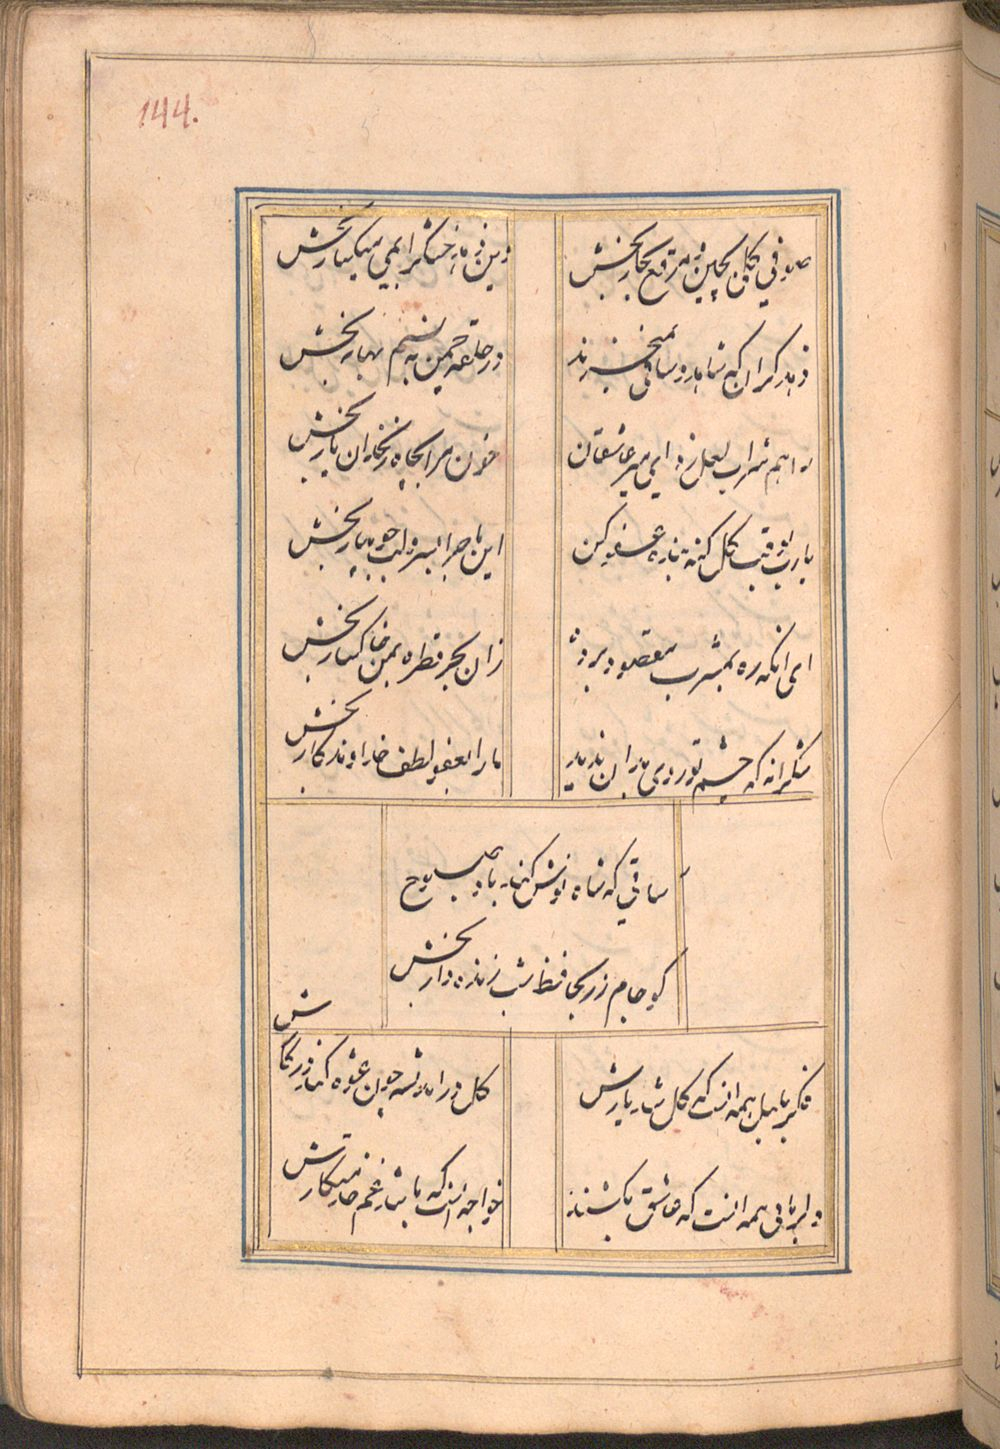 144.
صوفی کلی بچین و مرقع بخار بخش
وین زهد خشکرا بمی میکسار بخش
زهد کران که شاهد و ساقی نمیخرند
در حلقه چمن به نسیم بهار بخش
راهم شراب لعل زد ای میر عاشقان
خون مرا بچاه زنخدان یار بخش
یارب بوقت کل کنه بنده عفو کن
این ماجرا بسرو لب جویبار بخش
ای انکه ره بمشرب مقصود بردهٔ
زان بحر قطره بمن خاکسار بخش
شکرانه که چشم تو روی بدان ندید
مارا بعفو لطف خداوند کار بخش
ساقی که شاه نوش کند باده صبوح
کو جام زر بحافظ شب زنده دار بخش
فکر بلبل همه انست که کل شد یارش
کل در اندیشه چون عشوه کند در کارش
دلربائی همه انست که عاشق بکشند
خواجه انست که باشد غم خدمتکارش